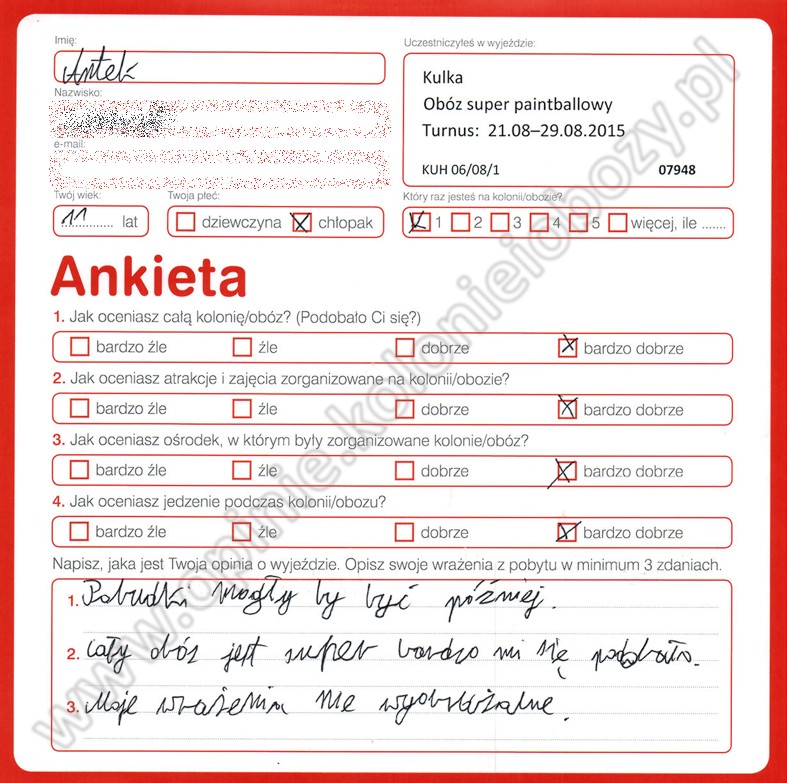 Imię:
Uczestniczyłeś w wyjeździe:
Antek
Kulka
Nazwisko:
Obóz super paintballowy
Turnus: 21.08–29.08.2015
e-mail:
KUH 06/08/1 07948
Twój wiek: Twoja płeć: Który raz jesteś na kolonii/obozie?
11 lat dziewczyna chłopak 1 2 3 4 5 więcej, ile .......
Ankieta
1. Jak oceniasz całą kolonię/obóz? (Podobało Ci się?)
bardzo źle źle dobrze bardzo dobrze
2. Jak oceniasz atrakcje i zajęcia zorganizowane na kolonii/obozie?
bardzo źle źle dobrze bardzo dobrze
3. Jak oceniasz ośrodek, w którym były zorganizowane kolonie/obóz?
bardzo źle źle dobrze bardzo dobrze
4. Jak oceniasz jedzenie podczas kolonii/obozu?
bardzo źle źle dobrze bardzo dobrze
Napisz, jaka jest Twoja opinia o wyjeździe. Opisz swoje wrażenia z pobytu w minimum 3 zdaniach.
1. Pobudki mogły by być później.
2. Cały obóz jest super bardzo mi się podobało.
3. Moje wrażenia nie wyobrażalne.
www.opinie.kolonieiobozy.pl